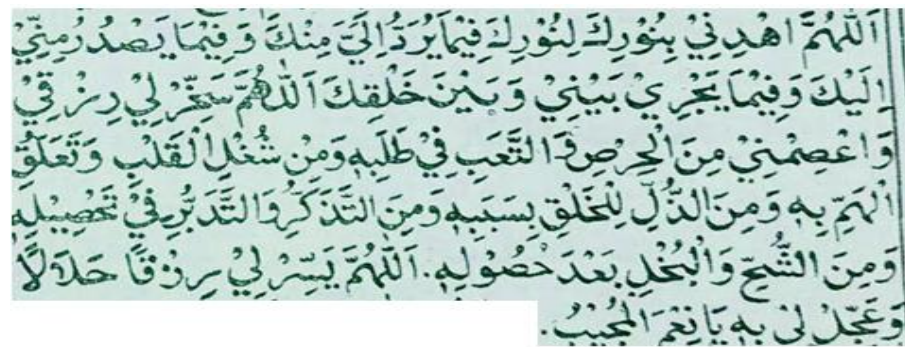 اَللّٰهُمَّ اهْدِنِيْ بِنُوْرِكَ لِنُوْرِكَ فِيْمَا يَرُدُّ اِلَيَّ مِنْكَ وَفِيْمَا يَصْدُرُ مِنِّيْ
اِلَيْكَ وَفِيْمَا يَجْرِيْ بَيْنِيْ وَبَيْنَ خَلْقِكَ اَللّٰهُمَّ سَخِّرْ لِيْ رِزْقِيْ
وَاعْصِمْنِيْ مِنَ الْحِرْصِ وَالتَّعَبِ فِيْ طَلَبِهٖ وَمِنْ شُغْلِ الْقَلْبِ وَتَعَلُّقِ
الْهَمِّ بِهٖ وَمِنَ الذُّلِّ لِلْخَلْقِ بِسَبَبِهٖ وَمِنَ التَّذَكُّرِ وَالتَّدَبُّرِ فِيْ تَحْصِيْلِهٖ
وَمِنَ الشُّحِّ وَالْبُخْلِ بَعْدَ حُصُوْلِهٖ. اَللّٰهُمَّ يَسِّرْ لِيْ رِزْقًا حَلَالًا
وَعَجِّلْ لِيْ بِهٖ يَا نِعْمَ الْمُجِيْبُ.